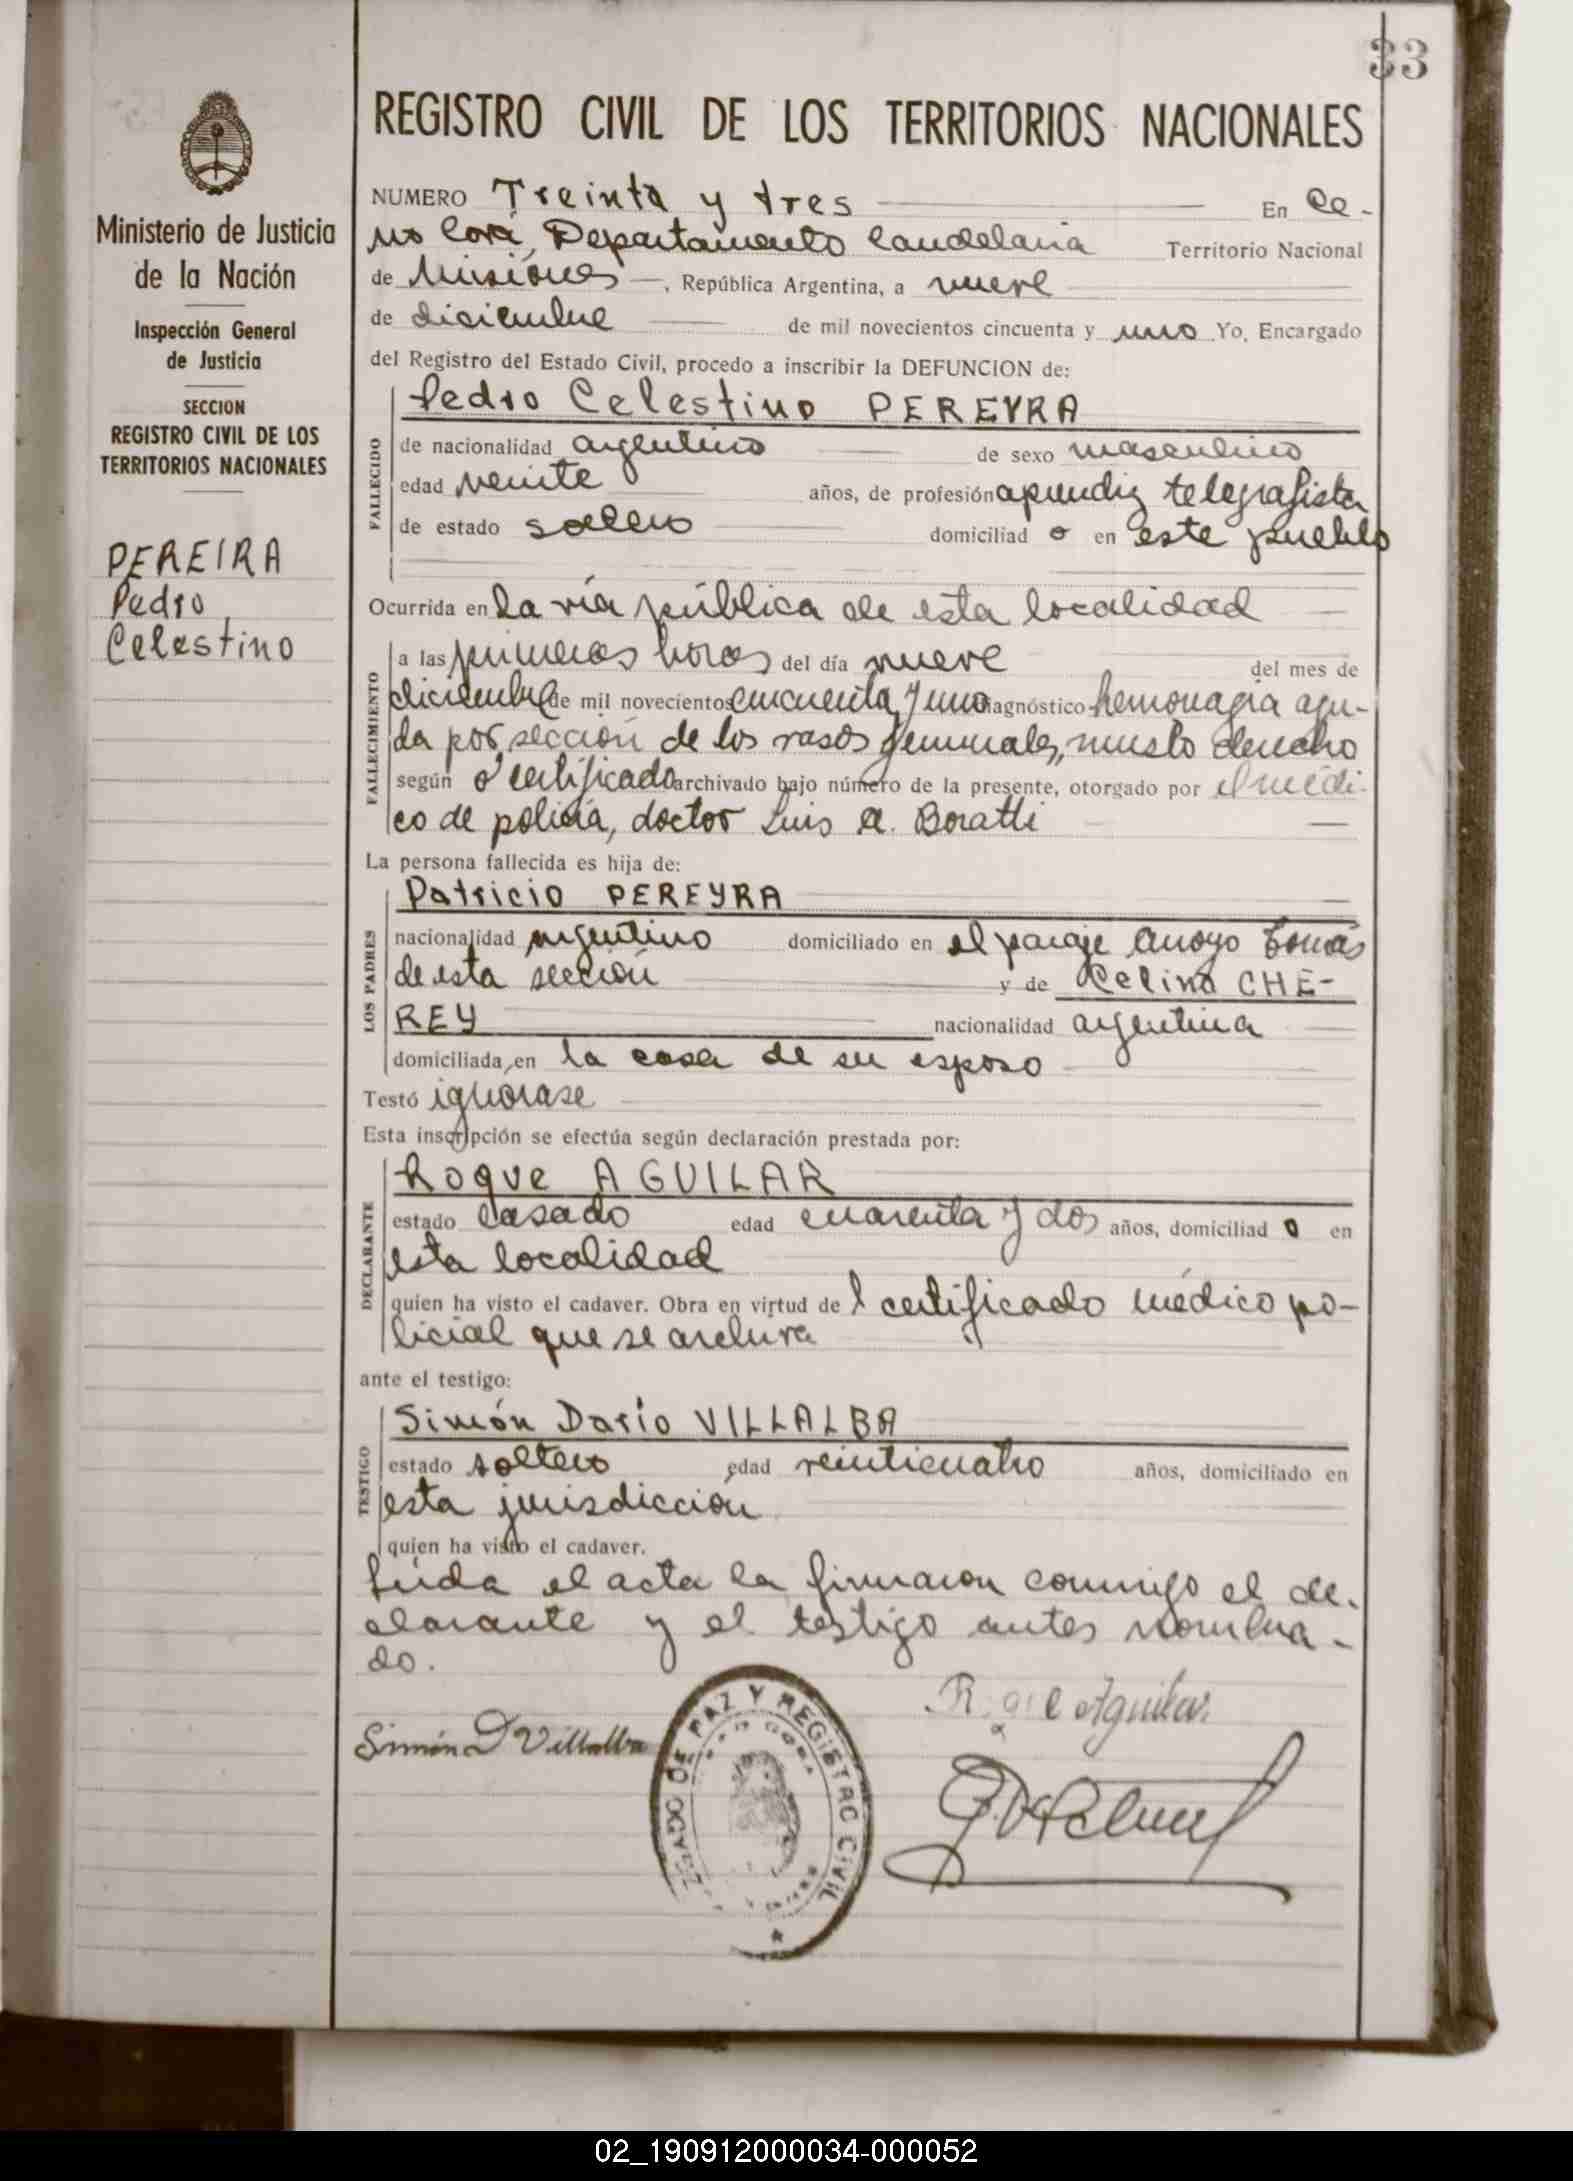 33
REGISTRO CIVIL DE LOS TERRITORIOS NACIONALES
Ministerio de Justicia
de la Nación
Inspección General
de Justicia
SECCION
REGISTRO CIVIL DE LOS
TERRITORIOS NACIONALES
PEREIRA
Pedro
Celestino
NUMERO Treinta y tres En Ce-
rro Corá, Departamento Candelaria Territorio Nacional
de Misiones, República Argentina, a nueve
de diciembre de mil novecientos cincuenta y uno Yo, Encargado
del Registro del Estado Civil, procedo a inscribir la DEFUNCION de:
FALLECIDO
Pedro Celestino PEREYRA
de nacionalidad argentino de sexo masculino
edad veinte años, de profesión aprendiz telegrafista
de estado soltero domiciliad o en este pueblo
Ocurrida en la vía pública de esta localidad
FALLECIMIENTO
a las primeras horas del día nueve del mes de
diciembre de mil novecientos cincuenta y uno diagnóstico hemorragia agu-
da por sección de los vasos femurales, muslo derecho
según certificado archivado bajo número de la presente, otorgado por el médi-
co de policía, doctor Luis A. Boratti
La persona fallecida es hija de:
LOS PADRES
Patricio PEREYRA
nacionalidad argentino domiciliado en el paraje Arroyo Tomás
de esta sección y de Celina CHE-
REY nacionalidad argentina
domiciliada en la casa de su esposo
Testó ignorase
Esta inscripción se efectúa según declaración prestada por:
DECLARANTE
Roque AGUILAR
estado casado edad cuarenta y dos años, domiciliad o en
esta localidad
quien ha visto el cadaver. Obra en virtud de l certificado médico po-
licial que se archiva
ante el testigo:
TESTIGO
Simón Darío VILLALBA
estado soltero edad veinticuatro años, domiciliado en
esta jurisdicción
quien ha visto el cadaver.
Leída el acta la firmaron conmigo el de-
clarante y el testigo antes nombra-
do.
Simón D Villalba
JUZGADO DE PAZ Y REGISTRO CIVIL
Aguilar
02_190912000034-000052